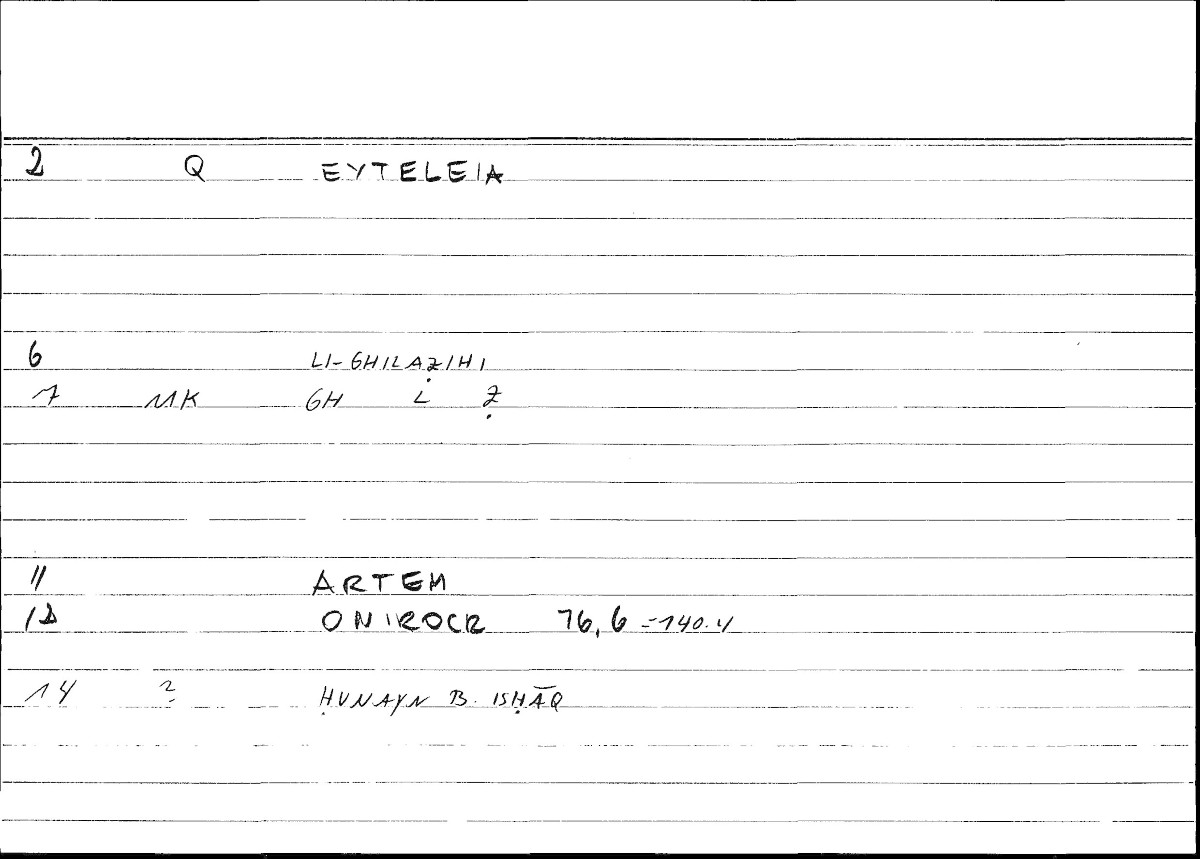 2 Q EYTELEIA
6 LI-GHILAẒIHI
7 MK GH L Ẓ
11 ARTEM
12 ONIROCR 76,6 =140.4
14 ? ḤUNAYN B. ISḤĀQ